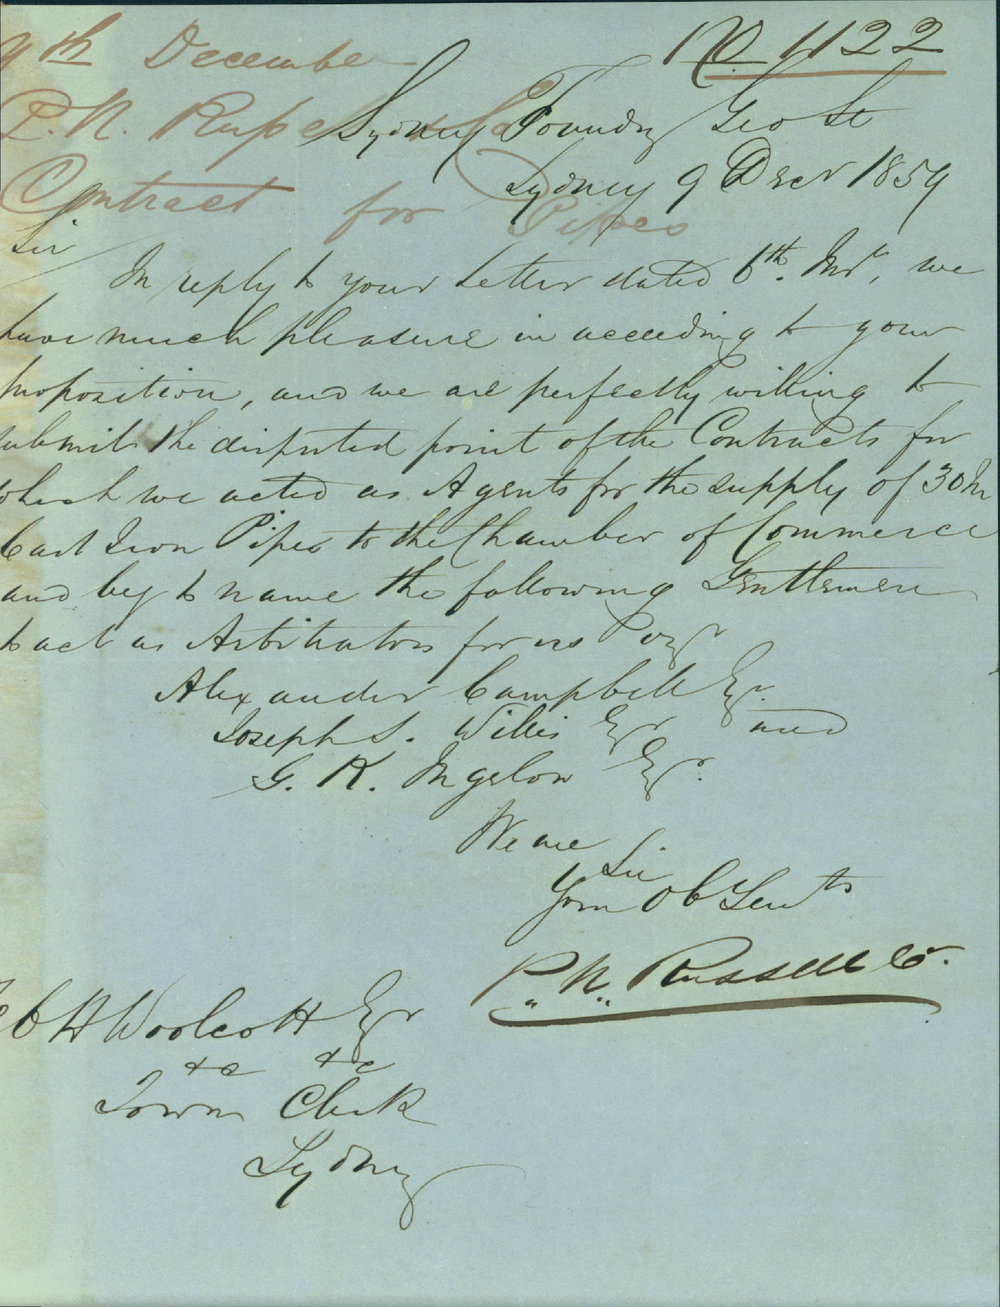 No 1122
9th December
P. N. Russell & Co
Contract for Pipes
Sydney Foundry Geo St
Sydney 9 Decr 1859
Sir
In reply to your letter dated 6th. Inst, we
have much pleasure in acceeding to your
proposition, and we are perfectly willing to
submit the disputed point of the Contracts for
which we acted as Agents for the supply of 30 In
Cast Iron Pipes to the Chamber of Commerce
and beg to name the following Gentlemen
to act as Arbitrators for us vizt
Alexander Campbell Esqr.
Joseph S. Willis Esqr and
G. K. Ingelow Esqr.
We are
Sir
Your Ob Servts
P. N. Russell & Co.
C H Woolcott Esqr
&c &c
Town Clerk
Sydney